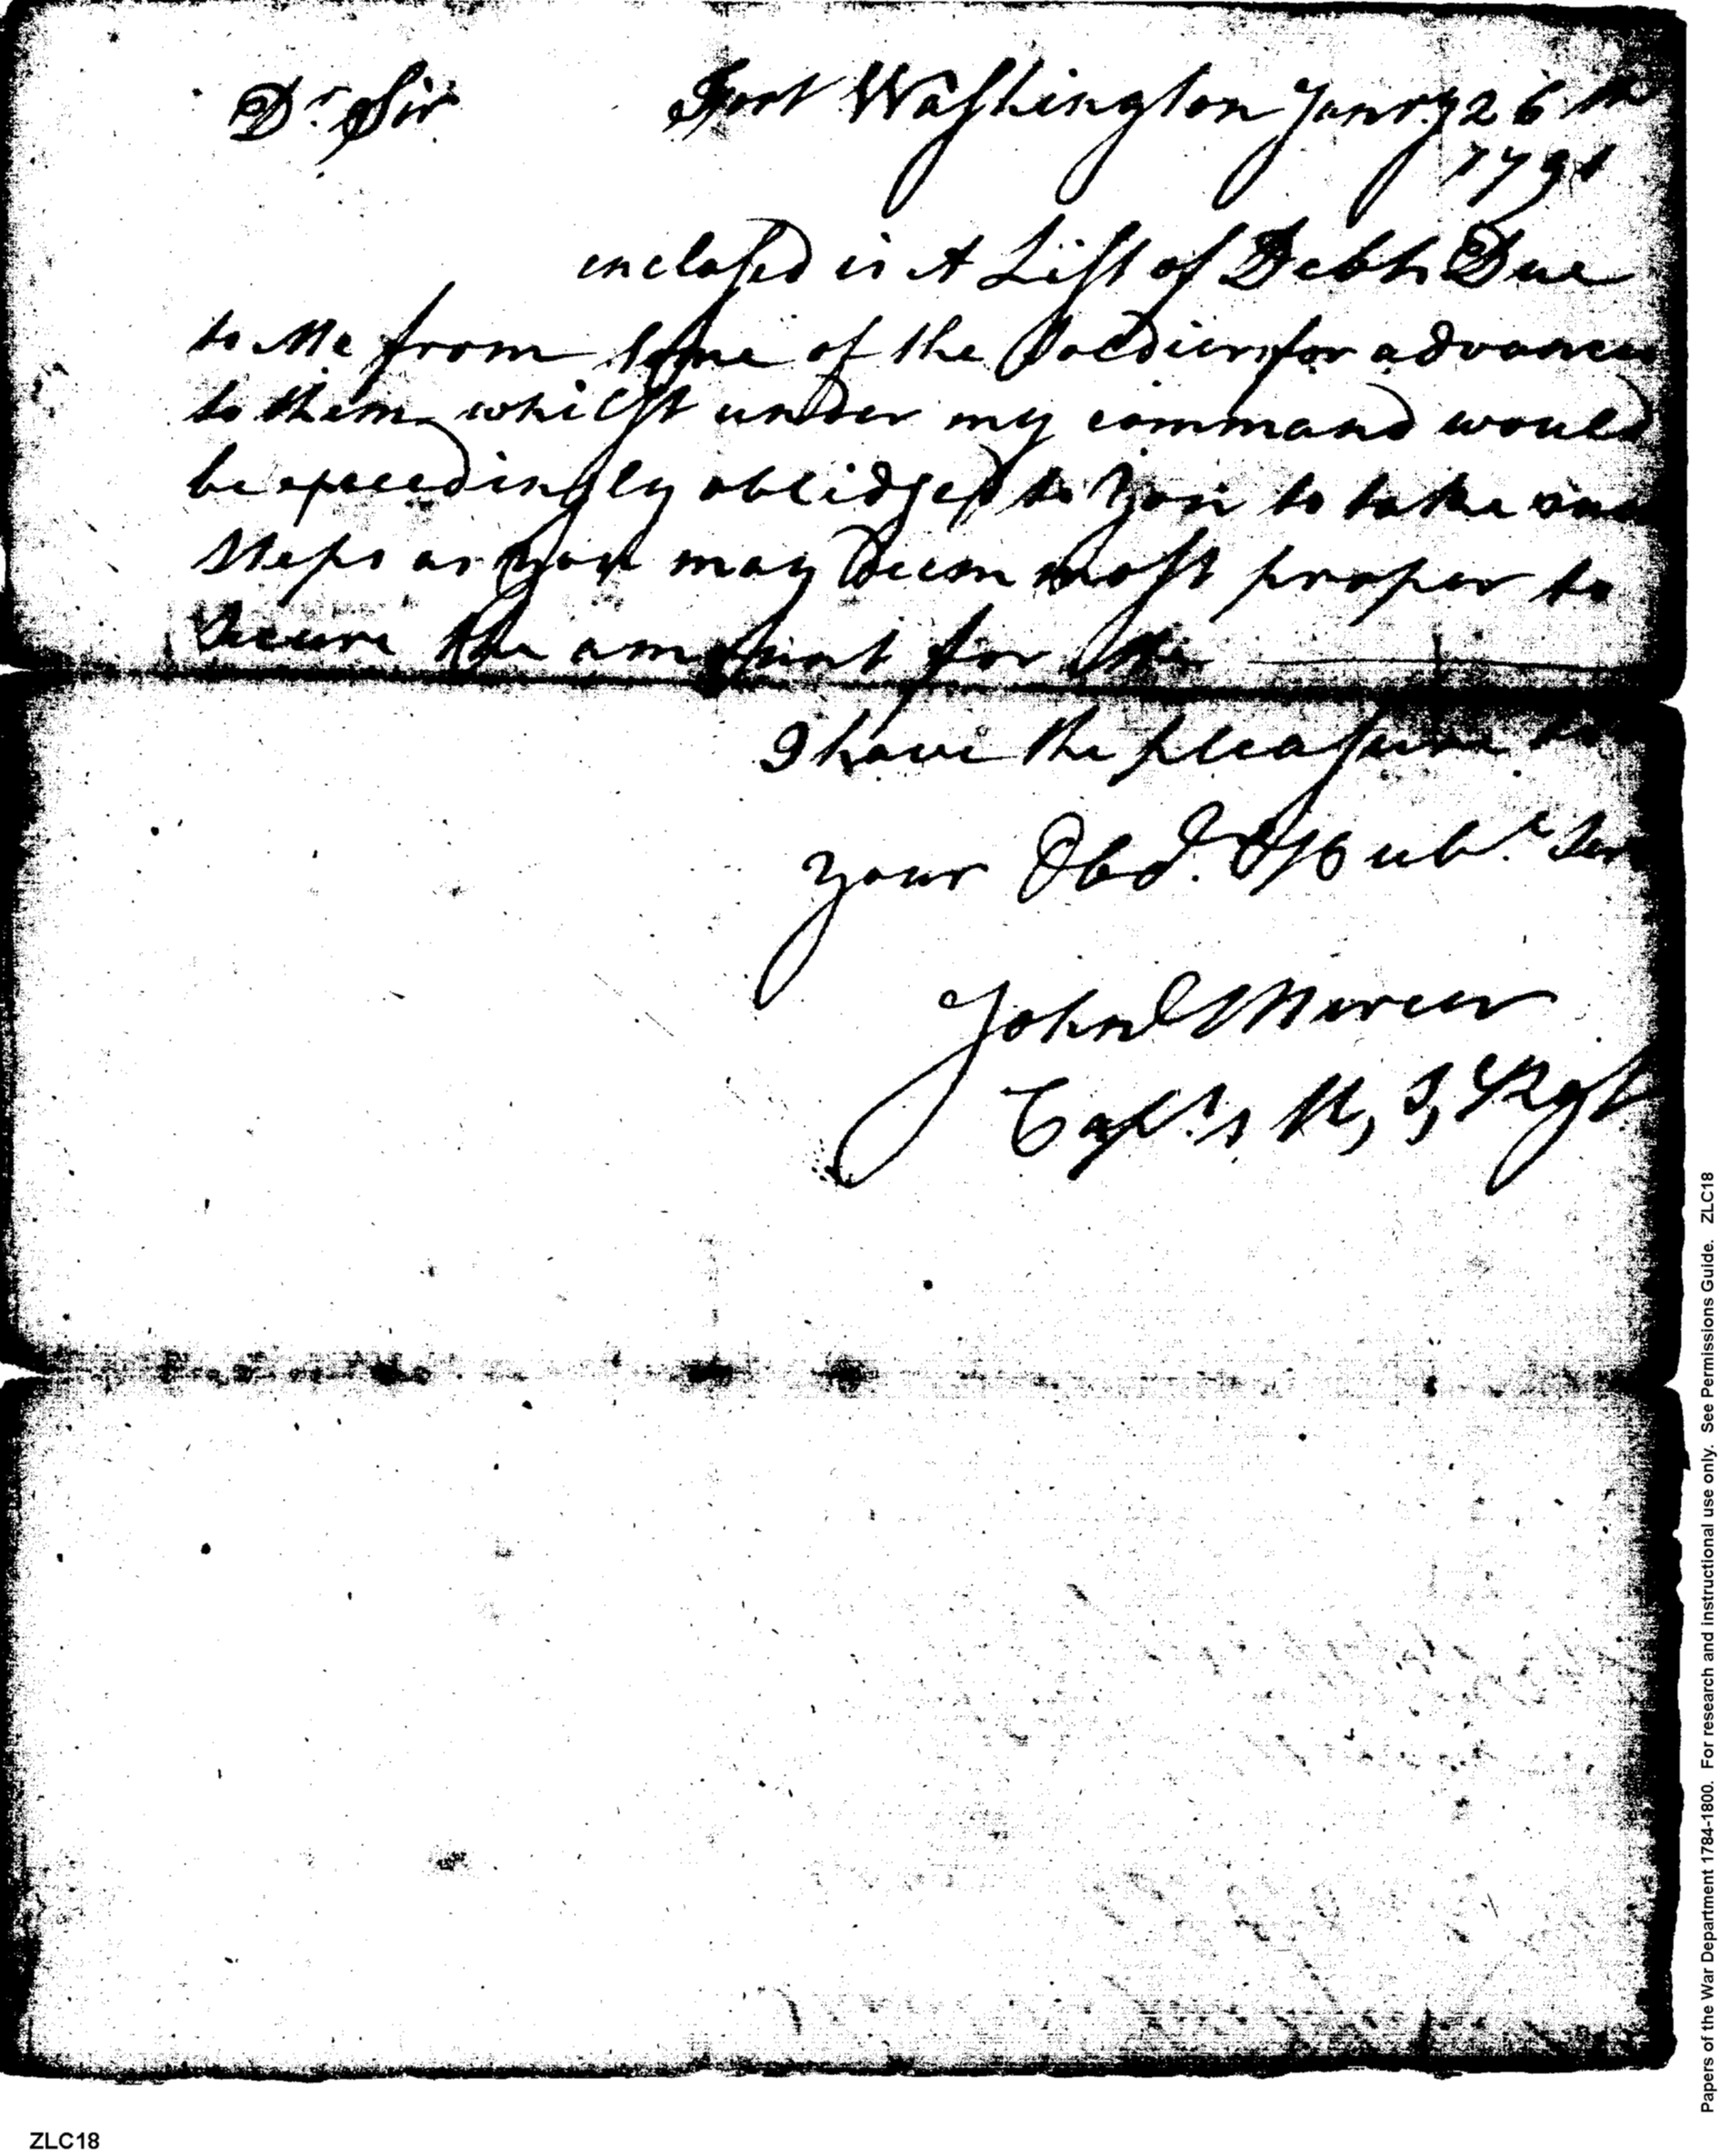 Dr. Sir Fort Washington Janry 26th
1791
enclosed is A List of Debts Due
to Me from some of the Soldiers for advances
to them whilst under my command would
be exceedingly oblidged to You to take such
steps as you may Deem most proper to
Secure the amount for Me
I have the pleasure to be
your Obd. & Hubl. Ser
John Mercer
Capt. 1 U, S, Rgt
Papers of the War Department 1784-1800. For research and instructional use only. See Permissions Guide. ZLC18
ZLC18